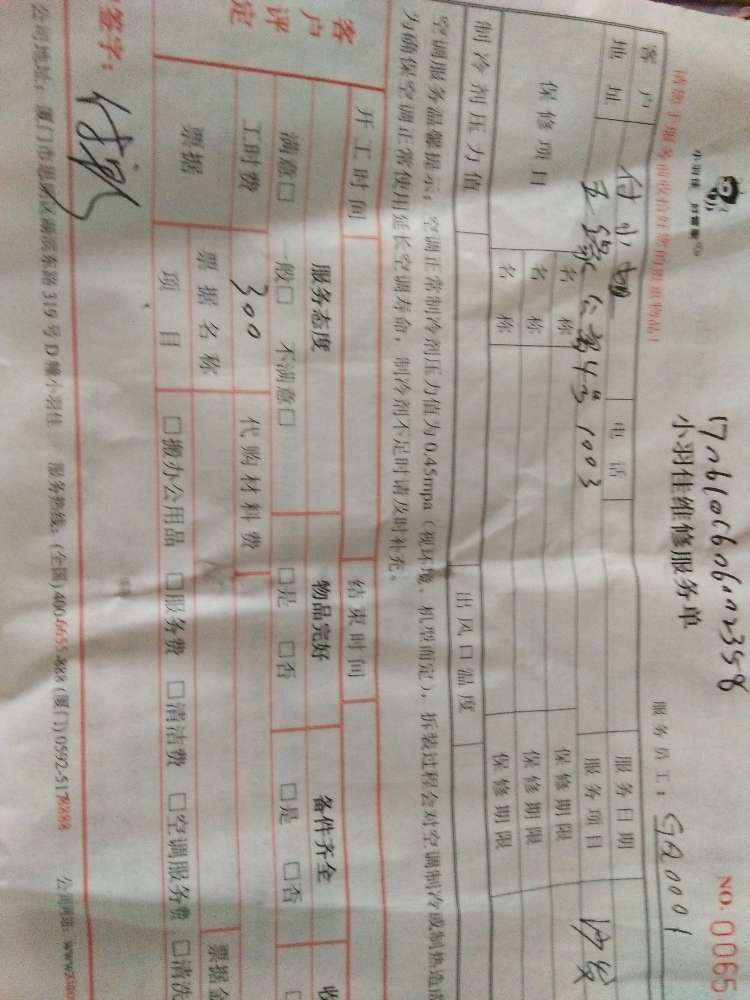 小羽佳 好管家
NO. 0065
1706106060102358
小羽佳维修服务单
请您于服务前收拾好您的贵重物品！
服务员工：
客户 电话 服务日期
地址 4号1003 服务项目 沙发
保修项目 名称 保修期限
名称 保修期限
名称 保修期限
制冷剂压力值 出风口温度
空调服务温馨提示：空调正常制冷剂压力值为0.45mpa（视环境、机型而定），拆装过程会对空调制冷或制热造成
为确保空调正常使用延长空调寿命，制冷剂不足时请及时补充。
开工时间 结束时间
客户评定 服务态度 物品完好 备件齐全 收
满意□ 一般□ 不满意□ □是 □否 □是 □否 □
工时费 300 代购材料费
票据 票据名称 票据金
项目 □搬办公用品 □服务费 □清洁费 □空调服务费 □清洗
客签字：
公司地址：厦门市思明区湖滨东路319号D幢小羽佳 服务热线：(全国)400-6655-888 (厦门)0592-5178888 公司网站：www.xiao